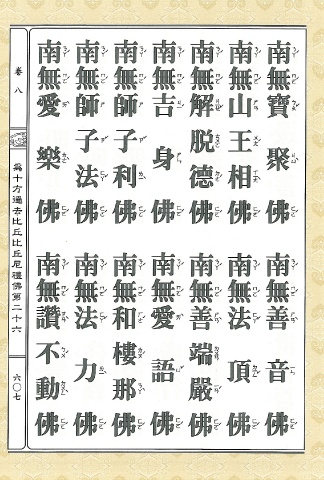 南無寶聚佛
南無善音佛
南無山王相佛
南無法頂佛
南無解脫德佛
南無善端嚴佛
南無吉身佛
南無愛語佛
南無師子利佛
南無和樓那佛
南無師子法佛
南無法力佛
南無愛樂佛
南無讚不動佛
卷八
為十方過去比丘比丘尼禮佛第二十六
六〇七